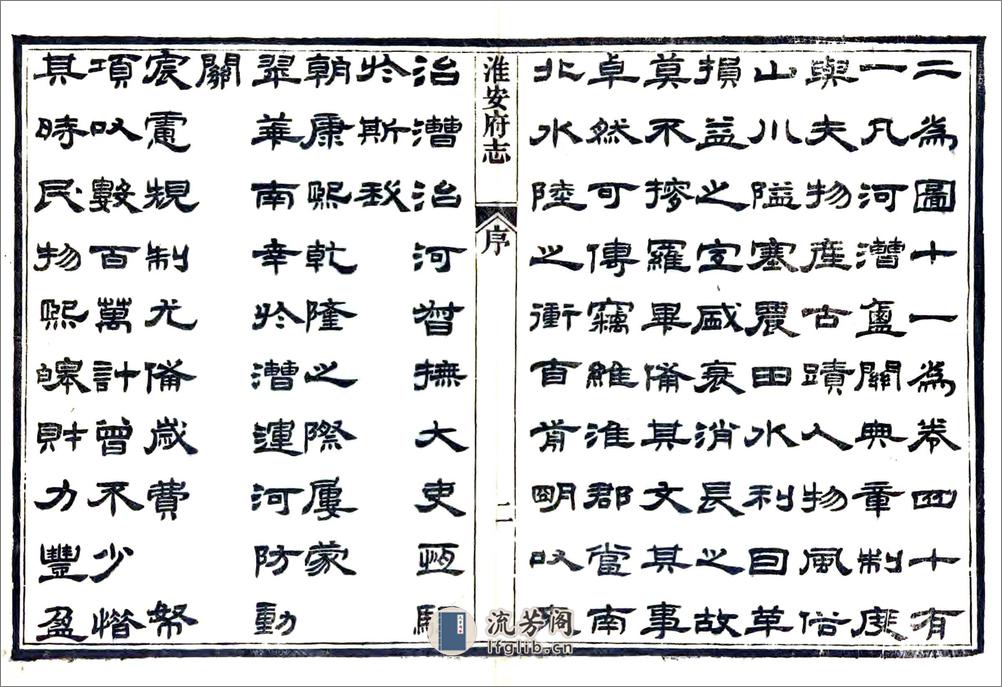 二為圖十一為卷四十有
一凡河漕鹽關典章制度
輿夫物產古蹟人物風俗
山川隘塞農田水利因革
損益之宜盛衰消長之故
莫不搜羅畢備其文其事
卓然可傳竊維淮郡當南
北水陸之衝自前明以來
淮安府志
序
二
治漕治河督撫大吏恆駐
於斯我
朝康熙乾隆之際屢蒙
翠華南幸於漕運河防動
關
宸慮規制尤備歲費帑
項以數百萬計曾不少惜
其時民物熙皞財力豐盈
流芳阁
lfglib.cn